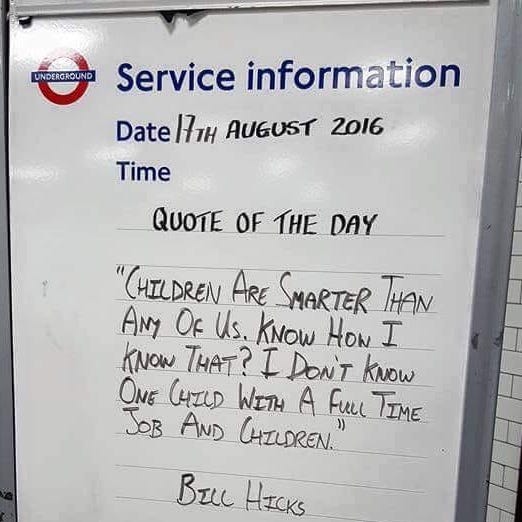 UNDERGROUND
Service information
Date 17TH AUGUST 2016
Time
QUOTE OF THE DAY
"CHILDREN ARE SMARTER THAN
ANY OF US. KNOW HOW I
KNOW THAT? I DON'T KNOW
ONE CHILD WITH A FULL TIME
JOB AND CHILDREN."
BILL HICKS